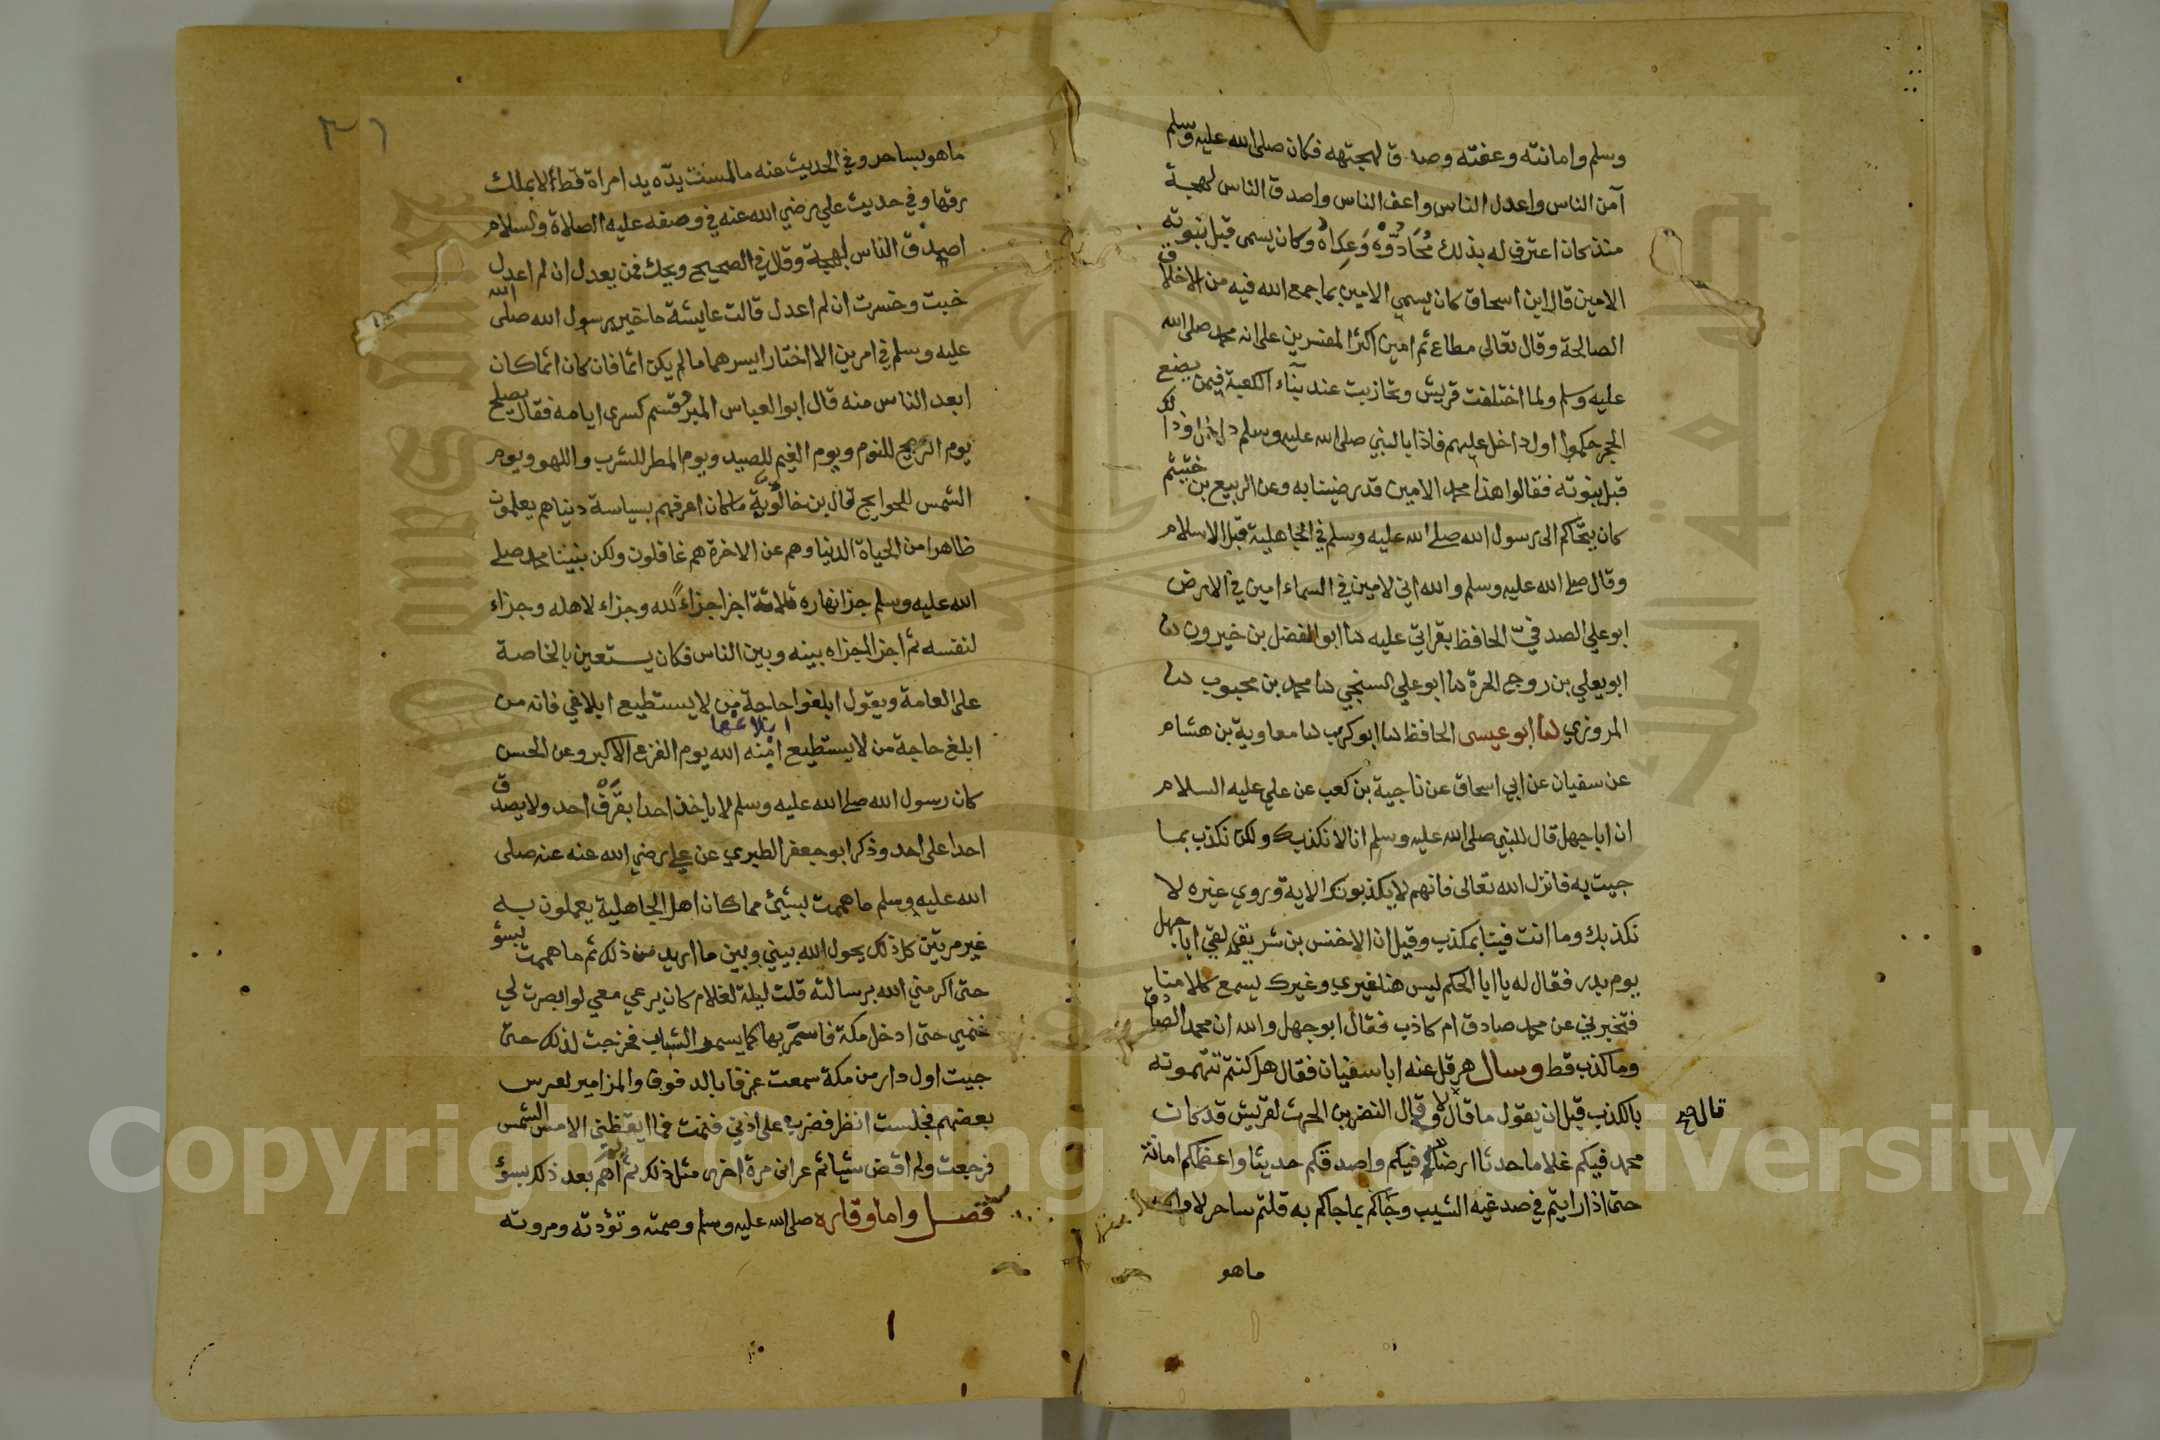 وسلم وامانته وعفته وصدق لهجته فكان صلى الله عليه وسلم
آمن الناس واعدل الناس واعف الناس واصدق الناس لهجة
منذ كان اعترف له بذلك مُحَادّوُهُ وَعِدَاهُ وكان يسمى قبل نبوته
الامين قال ابن اسحاق كان يسمى الامين بما جمع الله فيه من الاخلاق
الصالحة وقال تعالى مطاع ثم امين اكثر المفسرين على انه محمد صلى الله
عليه وسلم ولما اختلفت قريش وتحازبت عند بناء الكعبة فيمن يضع
الحجر حكموا اول داخل عليهم فاذا بالنبي صلى الله عليه وسلم داخل وذلك
قبل نبوته فقالوا هذا محمد الامين قد رضينا به وعن الربيع بن خثيم
كان يتحاكم الى رسول الله صلى الله عليه وسلم في الجاهلية قبل الاسلام
وقال صلى الله عليه وسلم والله اني لامين في السماء امين في الارض
ابو علي الصدفي الحافظ بقراتي عليه نا ابو الفضل بن خيرون نا
ابو يعلي بن زوج الحرة نا ابو علي السنجي نا محمد بن محبوب نا
المروزي نا ابو عيسى الحافظ نا ابو كريب نا معاوية بن هشام
عن سفيان عن ابي اسحاق عن ناجية بن كعب عن علي عليه السلام
ان ابا جهل قال للنبي صلى الله عليه وسلم انا لا نكذبك ولكن نكذب بما
جيت به فانزل الله تعالى فانهم لا يكذبونك الاية وروي غيره لا
نكذبك وما انت فينا بمكذب وقيل ان الاخنس بن شريق لقي ابا جهل
يوم بدر فقال له يا ابا الحكم ليس هنا غيري وغيرك يسمع كلامنا
فتخبرني عن محمد صادق ام كاذب فقال ابو جهل والله ان محمد الصادق
وما كذب قط وسال هرقل عنه ابا سفيان فقال هل كنتم تتهمونه
بالكذب قبل ان يقول ما قال قال لا وقال النضر بن الحرث لقريش قد كان
قال صح
محمد فيكم غلاما حدثا ارضاكم فيكم واصدقكم حديثا واعظمكم امانة
حتى اذا رايتم في صدغيه الشيب وجاكم بما جاكم به قلتم ساحر لا والله
ماهو
٣٦
ما هو بساحر وفي الحديث عنه ما لمست يده يد امراة قط لا يملك
رقها وفي حديث علي رضي الله عنه في وصفه عليه الصلاة والسلام
اصدق الناس لهجة وقال في الصحيح ويحك فمن يعدل ان لم اعدل
خبت وخسرت ان لم اعدل قالت عايشة ما خير رسول الله صلى الله
عليه وسلم في امرين الا اختار ايسرهما ما لم يكن اثما فان كان اثما كان
ابعد الناس منه قال ابو العباس المبرد قسم كسرى ايامه فقال يصلح
يوم الريح للنوم ويوم الغيم للصيد ويوم المطر للشرب واللهو ويوم
الشمس للحوايج قال بن خالويه ما كان اعرفهم بسياسة دنياهم يعلمون
ظاهرا من الحياة الدنيا وهم عن الاخرة هم غافلون ولكن نبينا محمد صلى
الله عليه وسلم جزا نهاره ثلاثة اجزا جزاء لله وجزاء لاهله وجزاء
لنفسه ثم اجزا جزاه بينه وبين الناس فكان يستعين بالخاصة
على العامة ويقول ابلغوا حاجة من لا يستطيع ابلاغي فانه من
ابلاغها
ابلغ حاجة من لا يستطيع امنه الله يوم الفزع الاكبر وعن الحسن
كان رسول الله صلى الله عليه وسلم لا ياخذ احدا بقرف احد ولا يصدق
احدا على احد وذكر ابو جعفر الطبري عن علي رضي الله عنه عنه صلى
الله عليه وسلم ما هممت بشيئ مما كان اهل الجاهلية يعملون به
غير مرتين كل ذلك يحول الله بيني وبين ما اريد من ذلك ثم ما هممت بسؤ
حتى اكرمني الله برسالته قلت ليلة لغلام كان يرعي معي لو ابصرت لي
غنمي حتى ادخل مكة فاسمر بها كما يسمر الشباب فخرجت لذلك حتى
جيت اول دار من مكة سمعت عزفا بالدفوف والمزامير لعرس
بعضهم فجلست انظر فضرب على اذني فنمت فما ايقظني الا مس الشمس
فرجعت ولم اقض شيا ثم عراني مرة اخرى مثل ذلك ثم لم اهم بعد ذلك بسؤ
فصل واما وقاره صلى الله عليه وسلم وصمته وتؤدته ومروته
Copyright © King Saud University